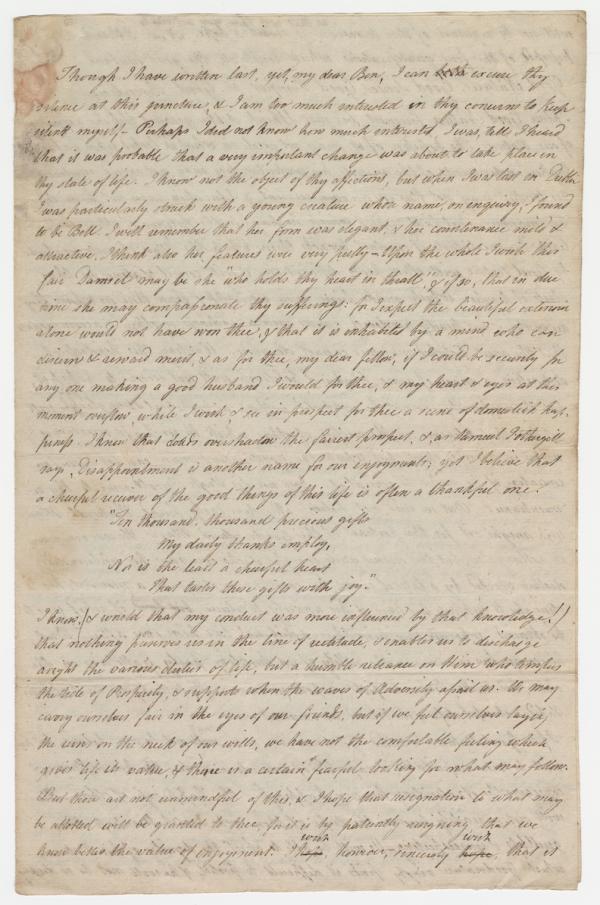 Though I have written last, yet, my dear Ben, I can excuse thy
silence at this juncture, & I am too much interested in thy concerns to keep
silent myself - Perhaps I did not know how much interested I was, till I heard
that it was probable that a very important change was about to take place in
thy state of life. I know not the object of thy affections, but when I was last in Dublin
I was particularly struck with a young creature whose name, on enquiry, I found
to be Bell. I well remember that her form was elegant, & her countenance mild &
attractive. I think also her features were very pretty - Upon the whole I wish this
fair Damsel may be she "who holds thy heart in thrall", & if so, that in due
time she may compassionate thy sufferings: for I expect the beautiful exterior
alone would not have won thee, & that it is inhabited by a mind who can
discern & reward merit, & as for thee, my dear fellow, if I could be security for
any one making a good husband I would for thee, & my heart & eyes at this
moment overflow, while I write, & see in prospect for thee a scene of domestick hap-
piness. I know that clouds overshadow the fairest prospect, & as Samuel Fothergill
says, Disappointment is another name for our enjoyments; yet I believe that
a cheerful receiver of the good things of this life is often a thankful one.
"Ten thousand, thousand precious gifts
My daily thanks employ,
Nor is the least a cheerful heart
That tastes these gifts with joy."
I know, (& would that my conduct was more influenced by that knowledge!)
that nothing preserves us in the line of rectitude, & enables us to discharge
aright the various duties of life, but a humble reliance on Him who tempers
the tide of Prosperity, & supports when the waves of Adversity assail us. We may
carry ourselves fair in the eyes of our friends, but if we feel ourselves laying
the reins on the neck of our wills, we have not the comfortable feeling which
gives life its value, & there is a certain fearful looking for what may follow.
But thou art not unmindful of this, & I hope that resignation to what may
be allotted will be granted to thee, for it is by patiently resigning that we
know better the value of enjoyment. I wish, however, sincerely wish, that it